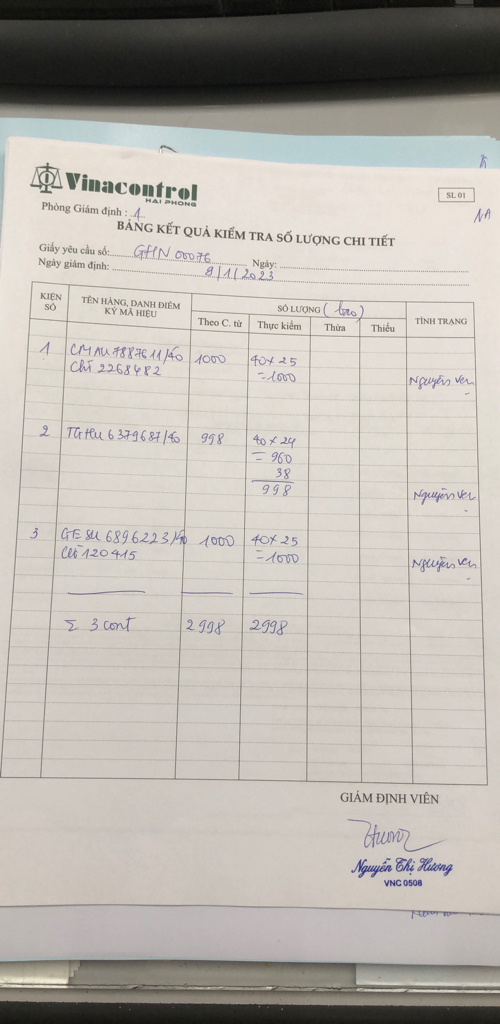 Vinacontrol
HAI PHONG
SL 01
Phòng Giám định : 1
NA
BẢNG KẾT QUẢ KIỂM TRA SỐ LƯỢNG CHI TIẾT
Giấy yêu cầu số: GHN 00076 Ngày:
Ngày giám định: 9/1/2023
KIỆN SỐ TÊN HÀNG, DANH ĐIỂM KÝ MÃ HIỆU SỐ LƯỢNG (bao) TÌNH TRẠNG
Theo C. từ Thực kiểm Thừa Thiếu
1 CMAU 7887611/40 1000 40x25
Chì 2268482 =1000 Nguyên vẹn
2 TGHU 6379687/40 998 40x24
= 960
38
998 Nguyên vẹn
3 GESU 6896223/40 1000 40x25
Chì 120415 =1000 Nguyên vẹn
Σ 3 cont 2998 2998
GIÁM ĐỊNH VIÊN
Hương
Nguyễn Thị Hương
VNC 0508